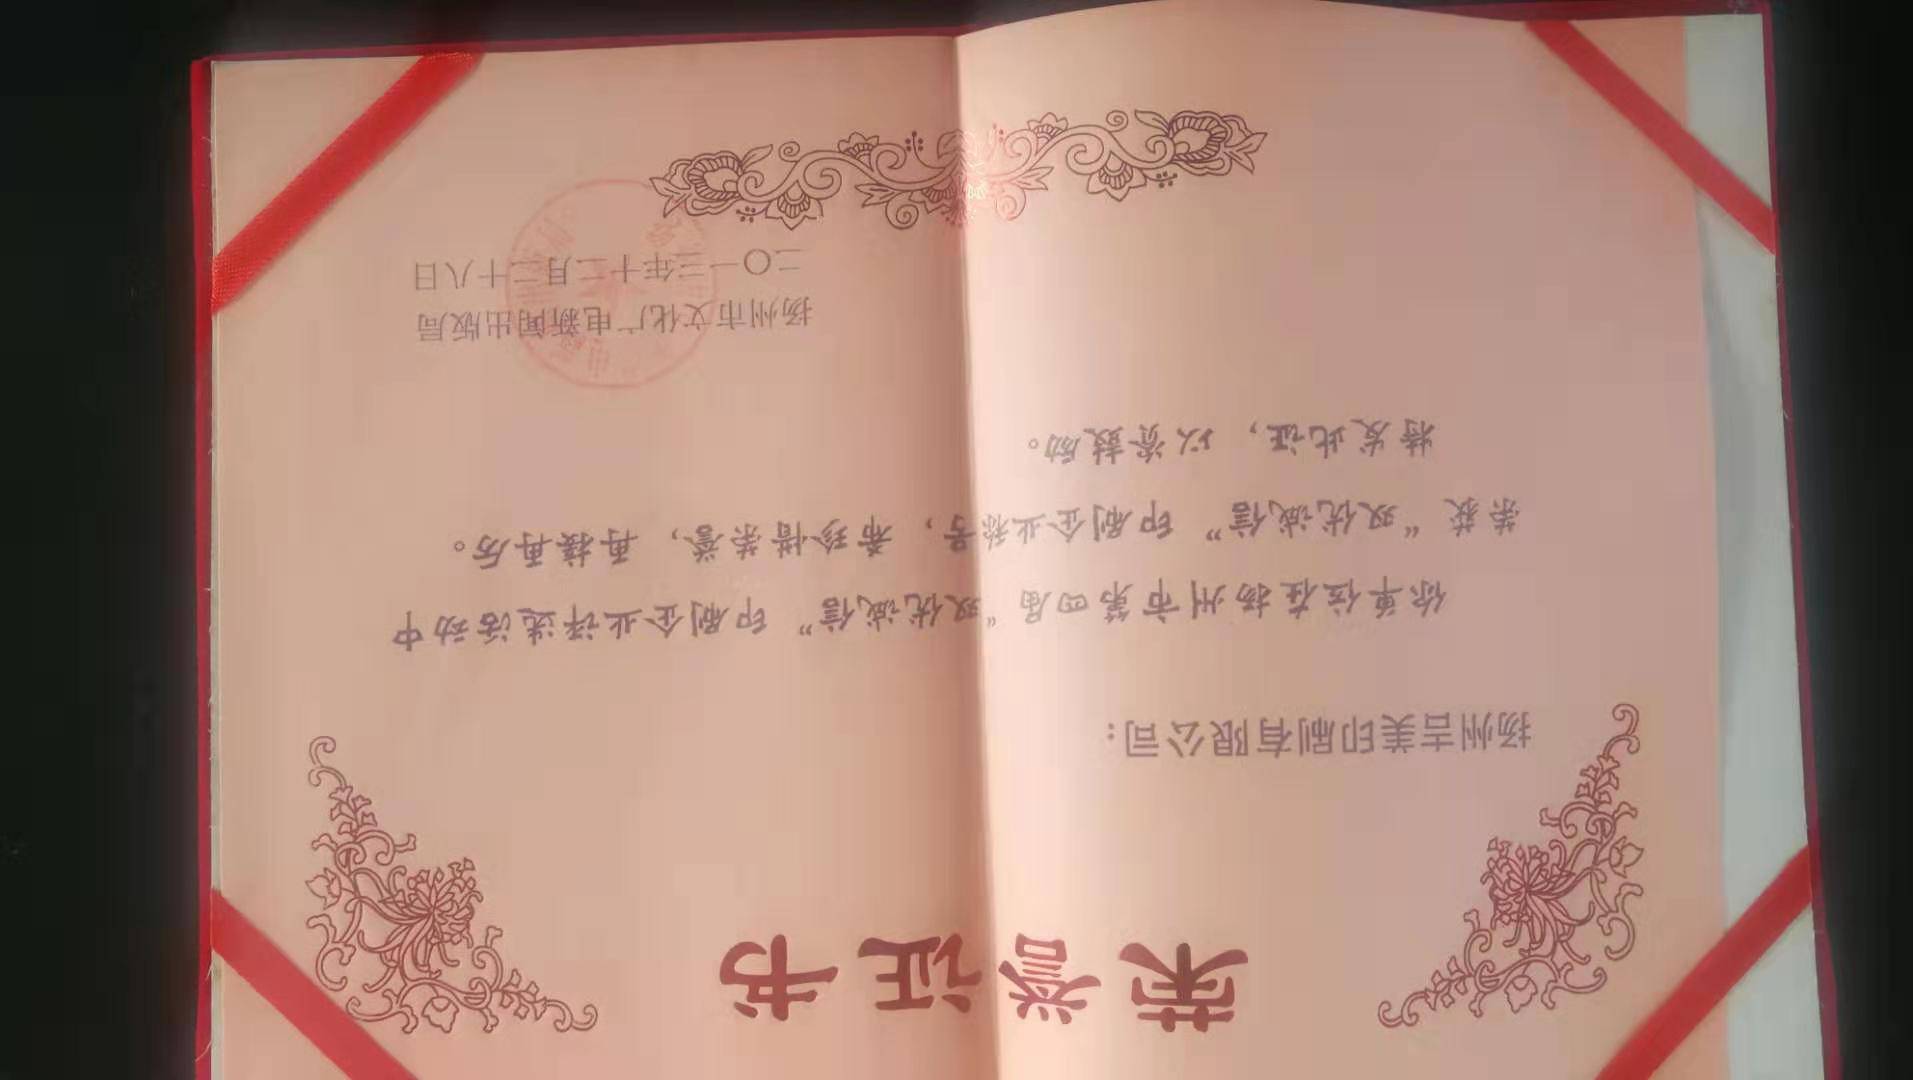 荣誉证书
扬州吉美印刷有限公司：
你单位在扬州市第四届“双优诚信”印刷企业评选活动中
荣获“双优诚信”印刷企业称号，希珍惜荣誉，再接再厉。
特发此证，以资鼓励。
扬州市文化广电新闻出版局
二〇一三年十二月二十八日